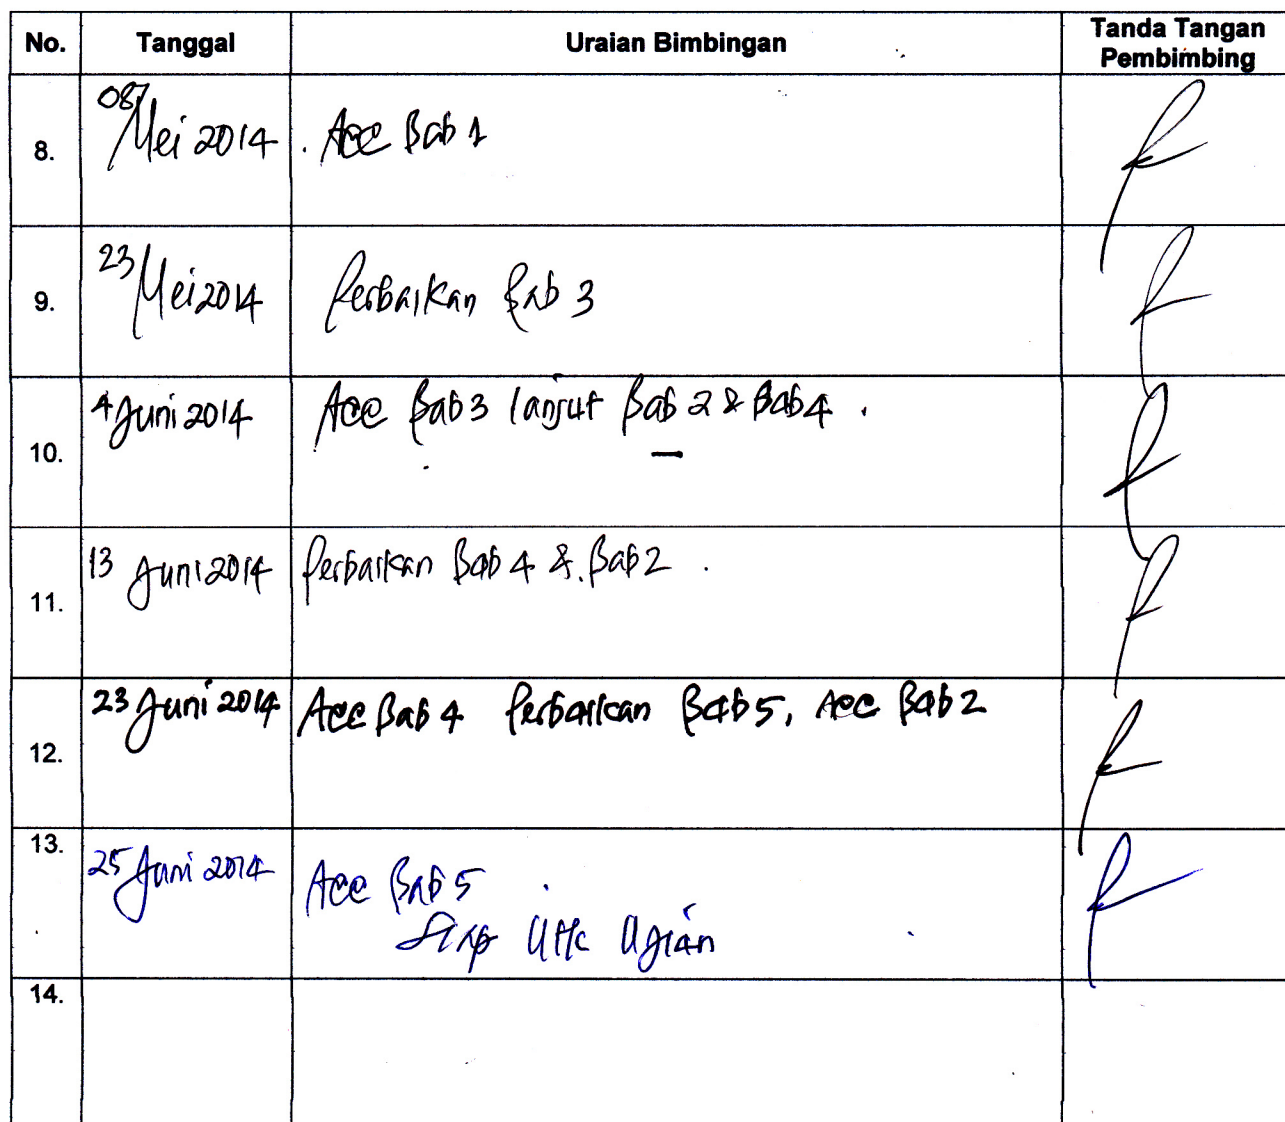 No. Tanggal Uraian Bimbingan Tanda Tangan Pembimbing
8. 08 Mei 2014 Acc Bab 1
9. 23 Mei 2014 Perbaikan Bab 3
10. 4 Juni 2014 Acc Bab 3 lanjut Bab 2 & Bab 4.
11. 13 Juni 2014 Perbaikan Bab 4 & Bab 2.
12. 23 Juni 2014 Acc Bab 4 Perbaikan Bab 5, Acc Bab 2
13. 25 Juni 2014 Acc Bab 5
Siap Utk Ujian
14.